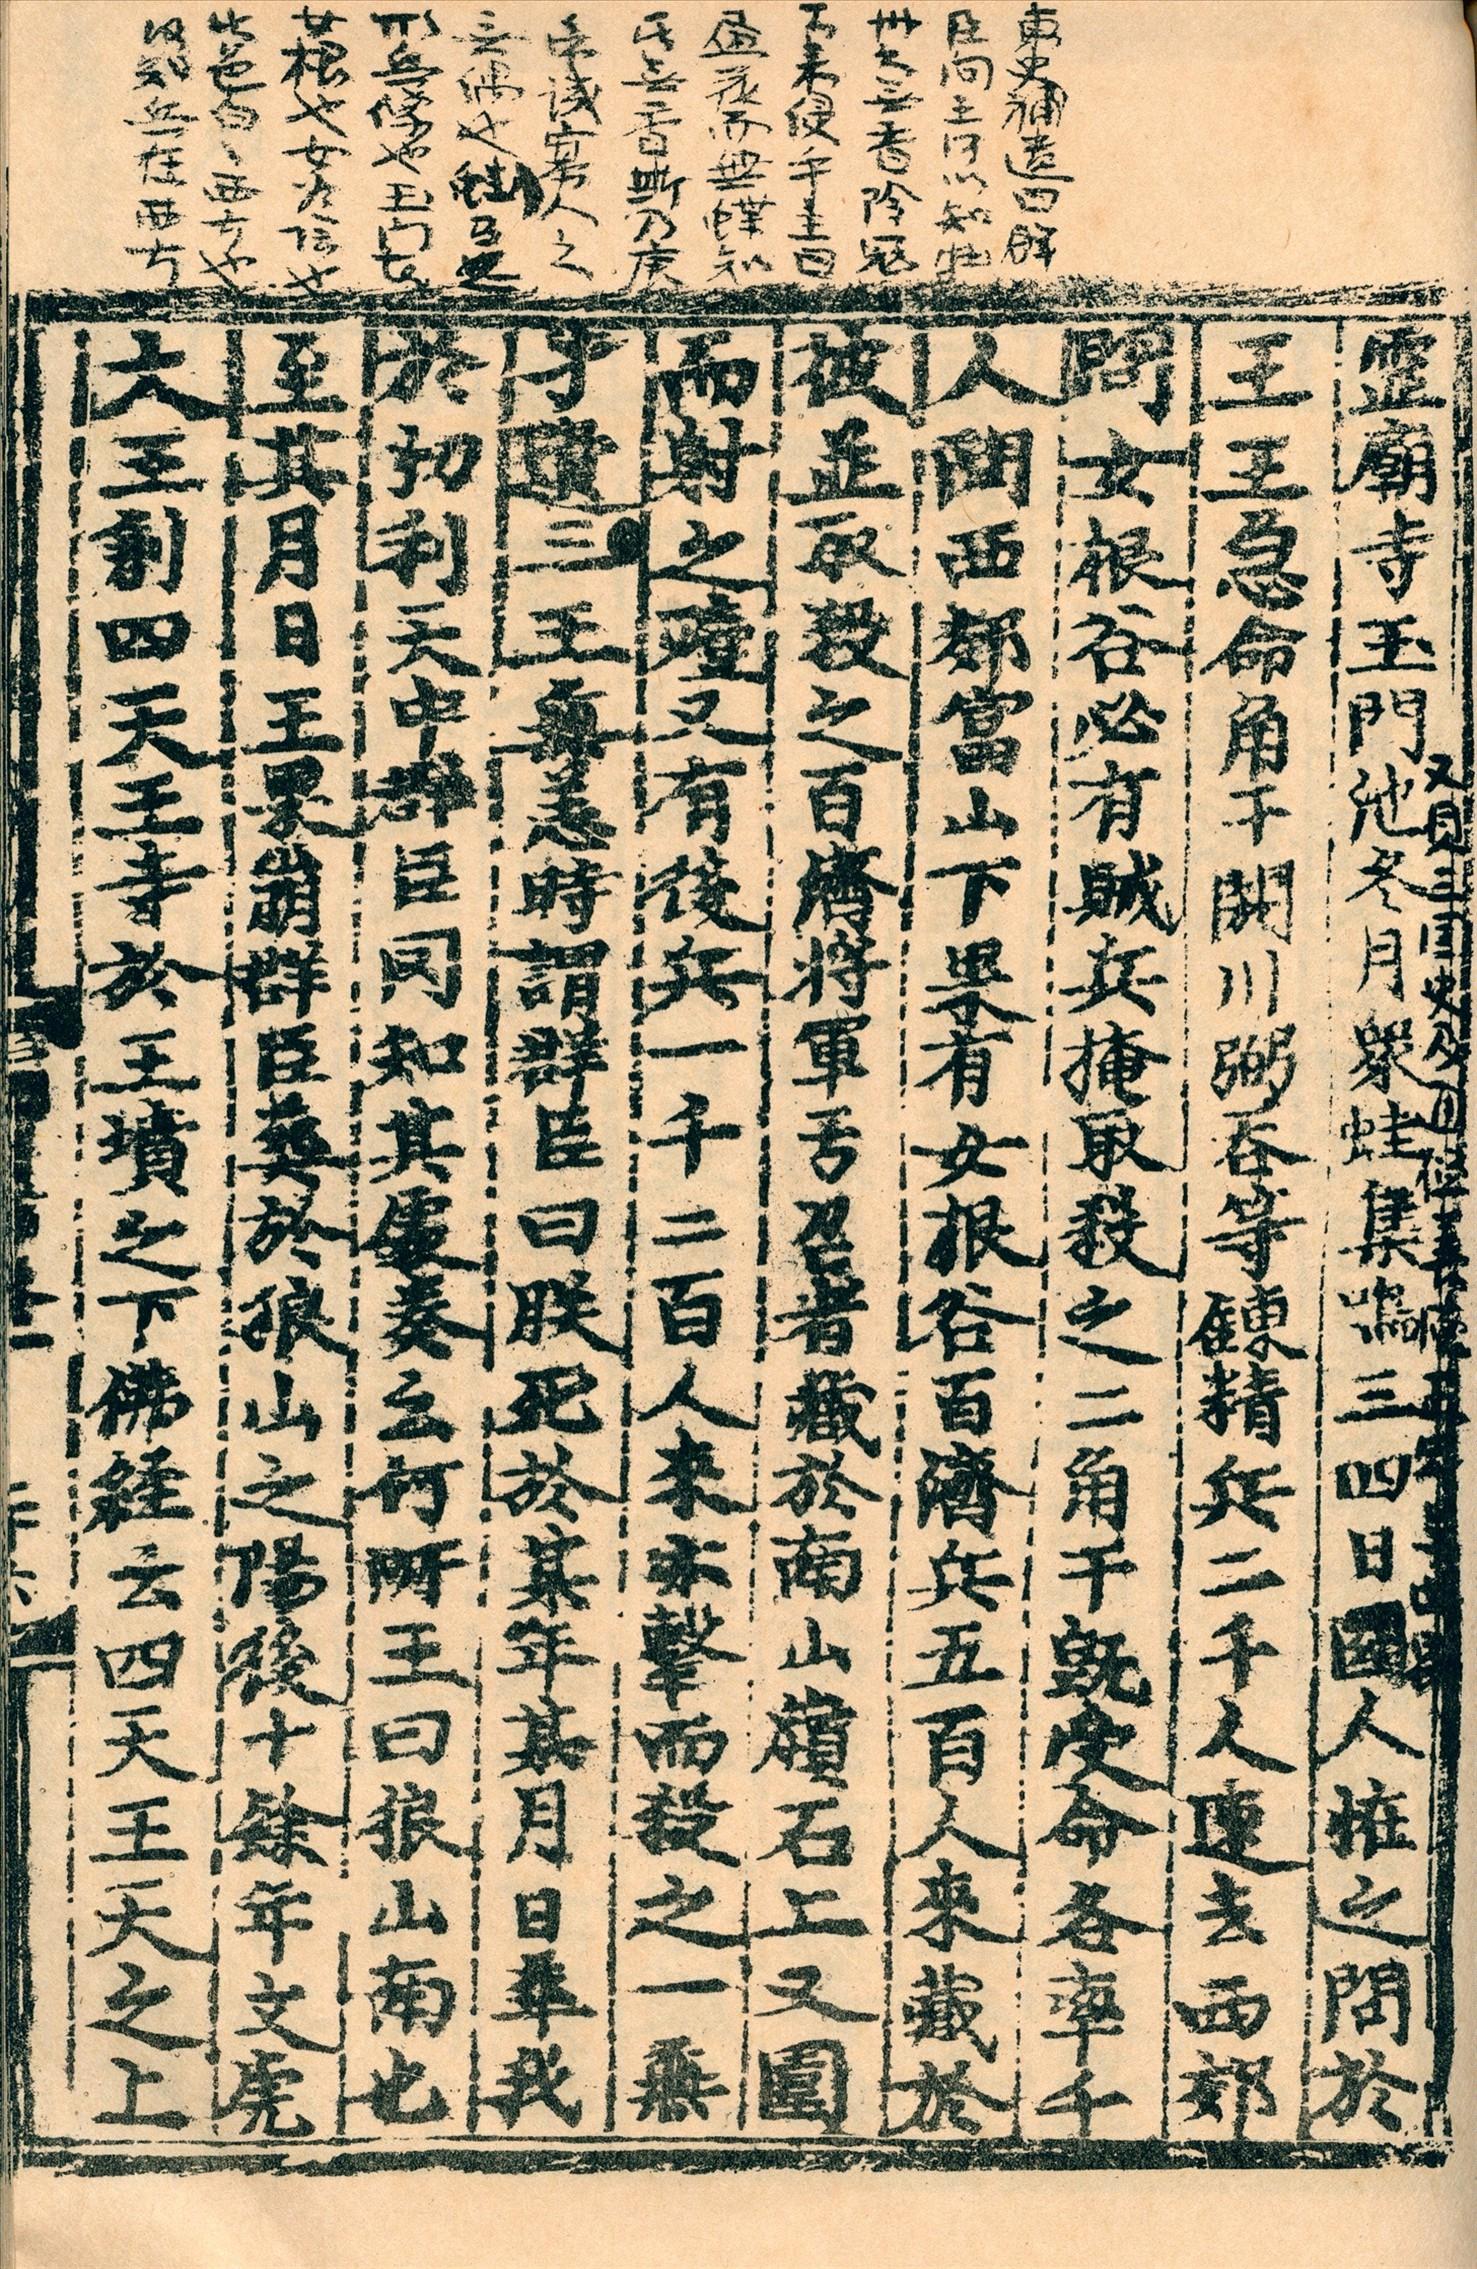 東史補遺四解
臣問王何以知此
卅花無香陰冠
下来侵乎王曰
畵花而無蝶知
其無香斯乃唐
帝譏寡人之
無偶也蛙
形兵像也玉門者
女根也女爲陰也
其色白白西方也
故知兵在西方
靈廟寺玉門池冬月衆蛙集鳴三四日國人恠之問於
王王急命角干閼川弼吞等鍊精兵二千人速去西郊
問女根谷必有賊兵掩取殺之二角干旣受命各率千
人問西郊富山下果有女根谷百濟兵五百人來藏於
彼並取殺之百濟將軍亐召者藏於南山嶺石上又圍
而射之殪又有後兵一千二百人來亦擊而殺之一無
孑遺三王無恙時謂群臣曰朕死於某年某月日葬我
於忉利天中群臣罔知其處奏云何所王曰狼山南也
至其月日王果崩群臣葬於狼山之陽後十餘年文虎
大王創四天王寺於王墳之下佛經云四天王天之上